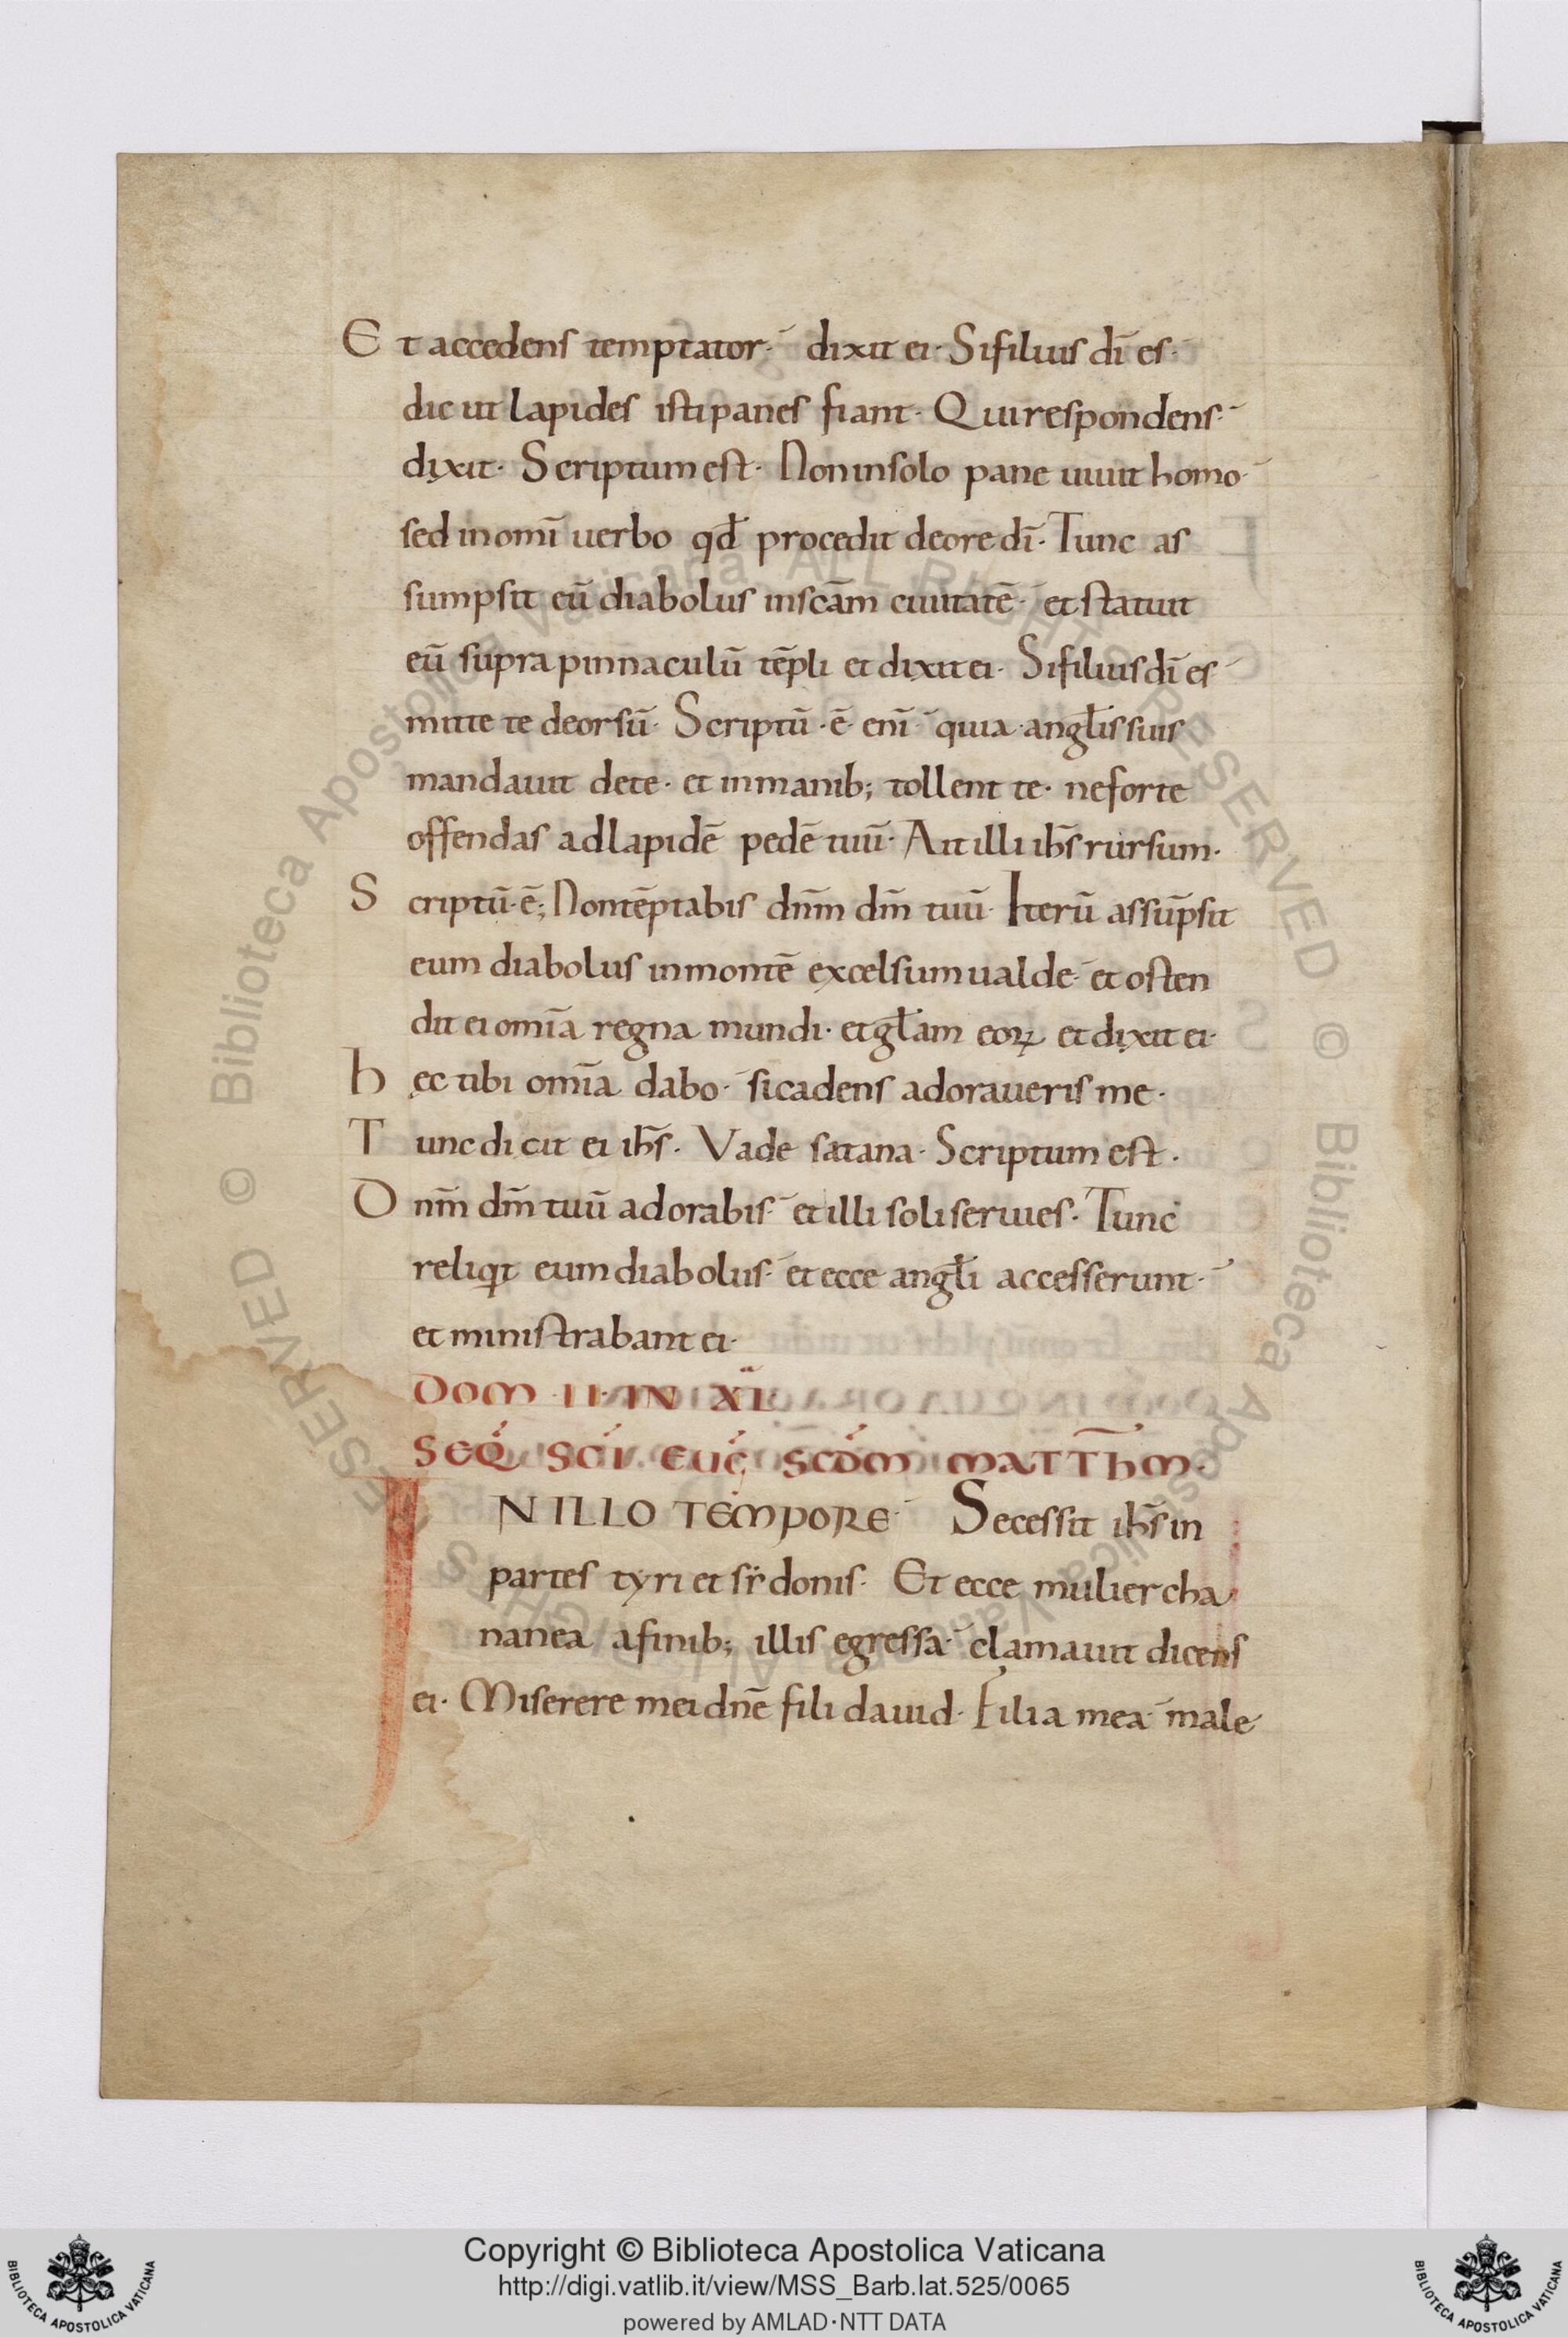 Et accedens temptator· dixit ei· Si filius dī es·
dic ut lapides isti panes fiant· Qui respondens·
dixit· Scriptum est· Non in solo pane uiuit homo·
sed in omī uerbo qđ procedit de ore dī· Tunc as
sumpsit eū diabolus in scām ciuitatē· et statuit
eū supra pinnaculū tēpli et dixit ei· Si filius dī es
mitte te deorsū· Scriptū·ē· enī quia angl̄is suis
mandauit de te· et in manib; tollent te· ne forte
offendas ad lapidē pedē tuū· Ait illi ih̄s rursum·
Scriptū·ē; Non tēptabis dn̄m dm̄ tuū· Iterū assūpsit
eum diabolus in montē excelsum ualde· et osten
dit ei omīa regna mundi· et gl̄am eoꝝ et dixit ei·
hęc tibi omīa dabo· si cadens adoraueris me·
Tunc dicit ei ih̄s· Vade satana· Scriptum est·
Dn̄m dm̄ tuū adorabis· et illi soli seruies· Tunc
reliqit eum diabolus· et ecce angl̄i accesserunt·
et ministrabant ei·
DOM II· IN XL
SEQ̄ SCI EUĒ SCDM MATTHM·
IN ILLO TEMPORE· Secessit ih̄s in
partes tyri et sydonis· Et ecce mulier cha
nanea a finib; illis egressa· clamauit dicens
ei· Miserere mei dn̄e fili dauid· Filia mea male
Copyright © Biblioteca Apostolica Vaticana
http://digi.vatlib.it/view/MSS_Barb.lat.525/0065
powered by AMLAD·NTT DATA
BIBLIOTECA APOSTOLICA VATICANA
BIBLIOTECA APOSTOLICA VATICANA